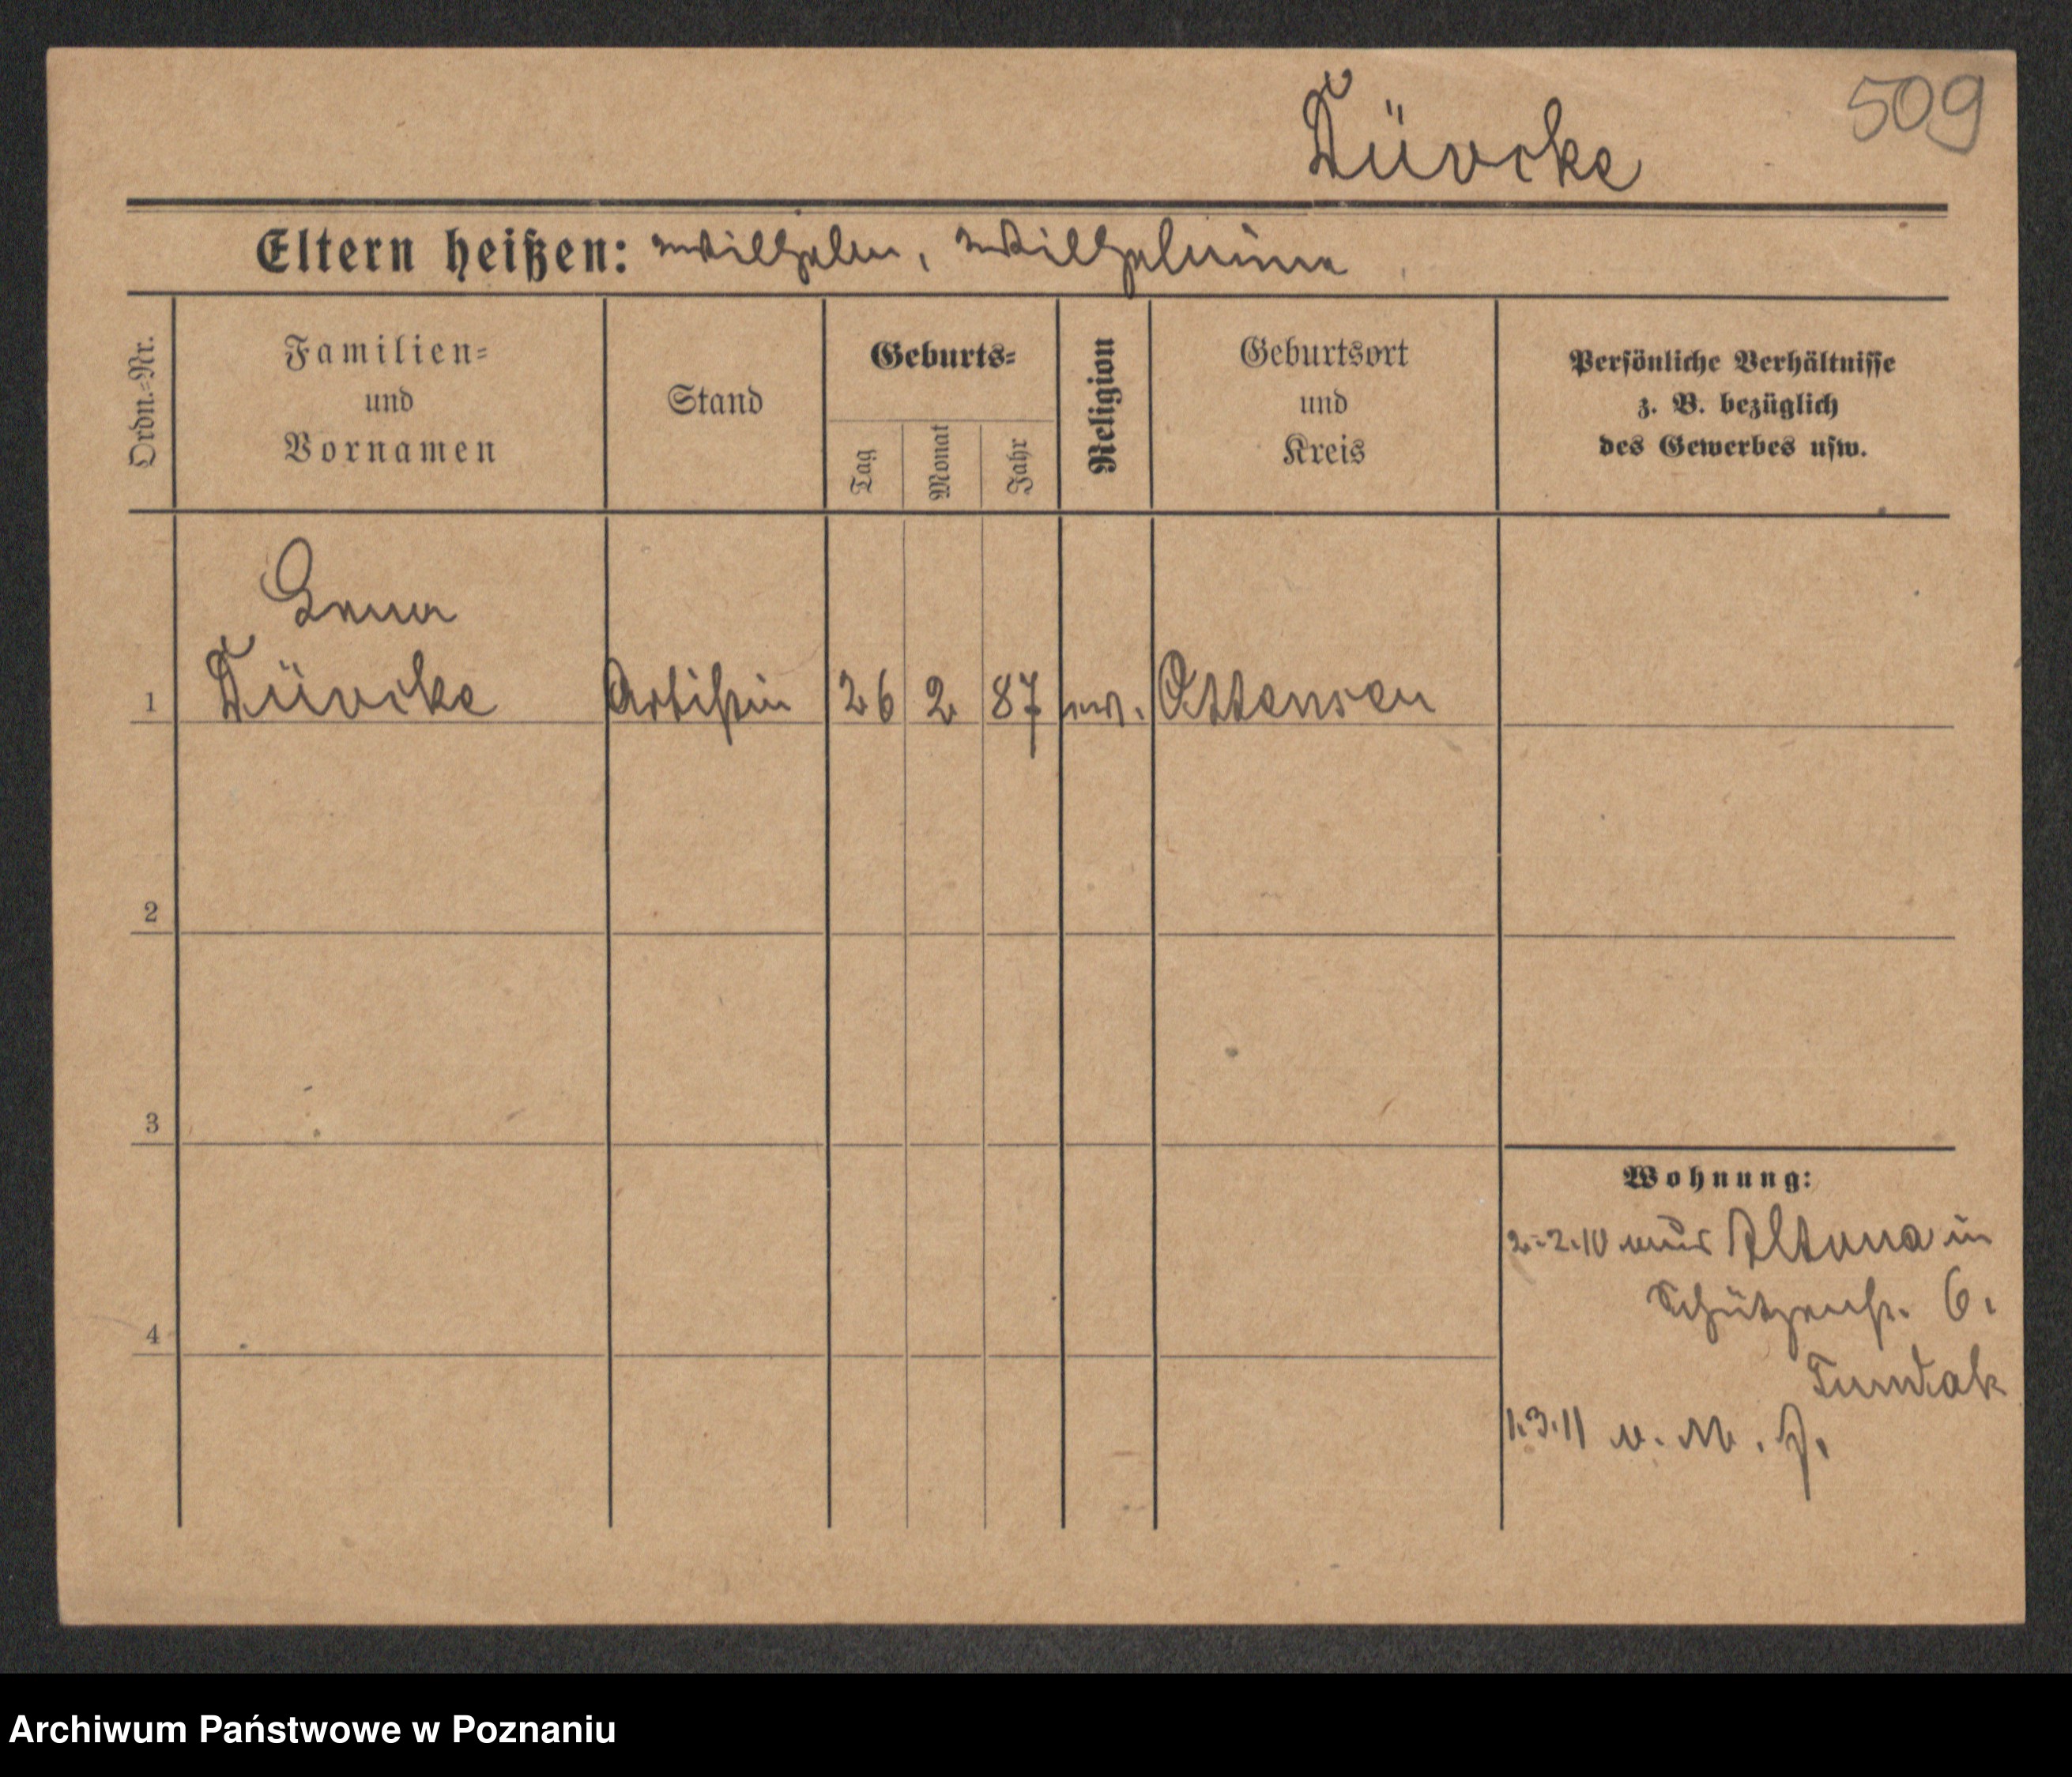 509
Dürcke
Eltern heißen: Wilhelm, Wilhelmine
Ordn.=Nr.
Familien=
und
Vornamen
Stand
Geburts=
Tag
Monat
Jahr
Religion
Geburtsort
und
Kreis
Persönliche Verhältnisse
z. B. bezüglich
des Gewerbes usw.
Dürcke Artistin 26 2 87 Ottensen
1
2
3
4
Wohnung:
2.2.10 aus Altona in
Schützenstr. 6.
1.3.11
Archiwum Państwowe w Poznaniu